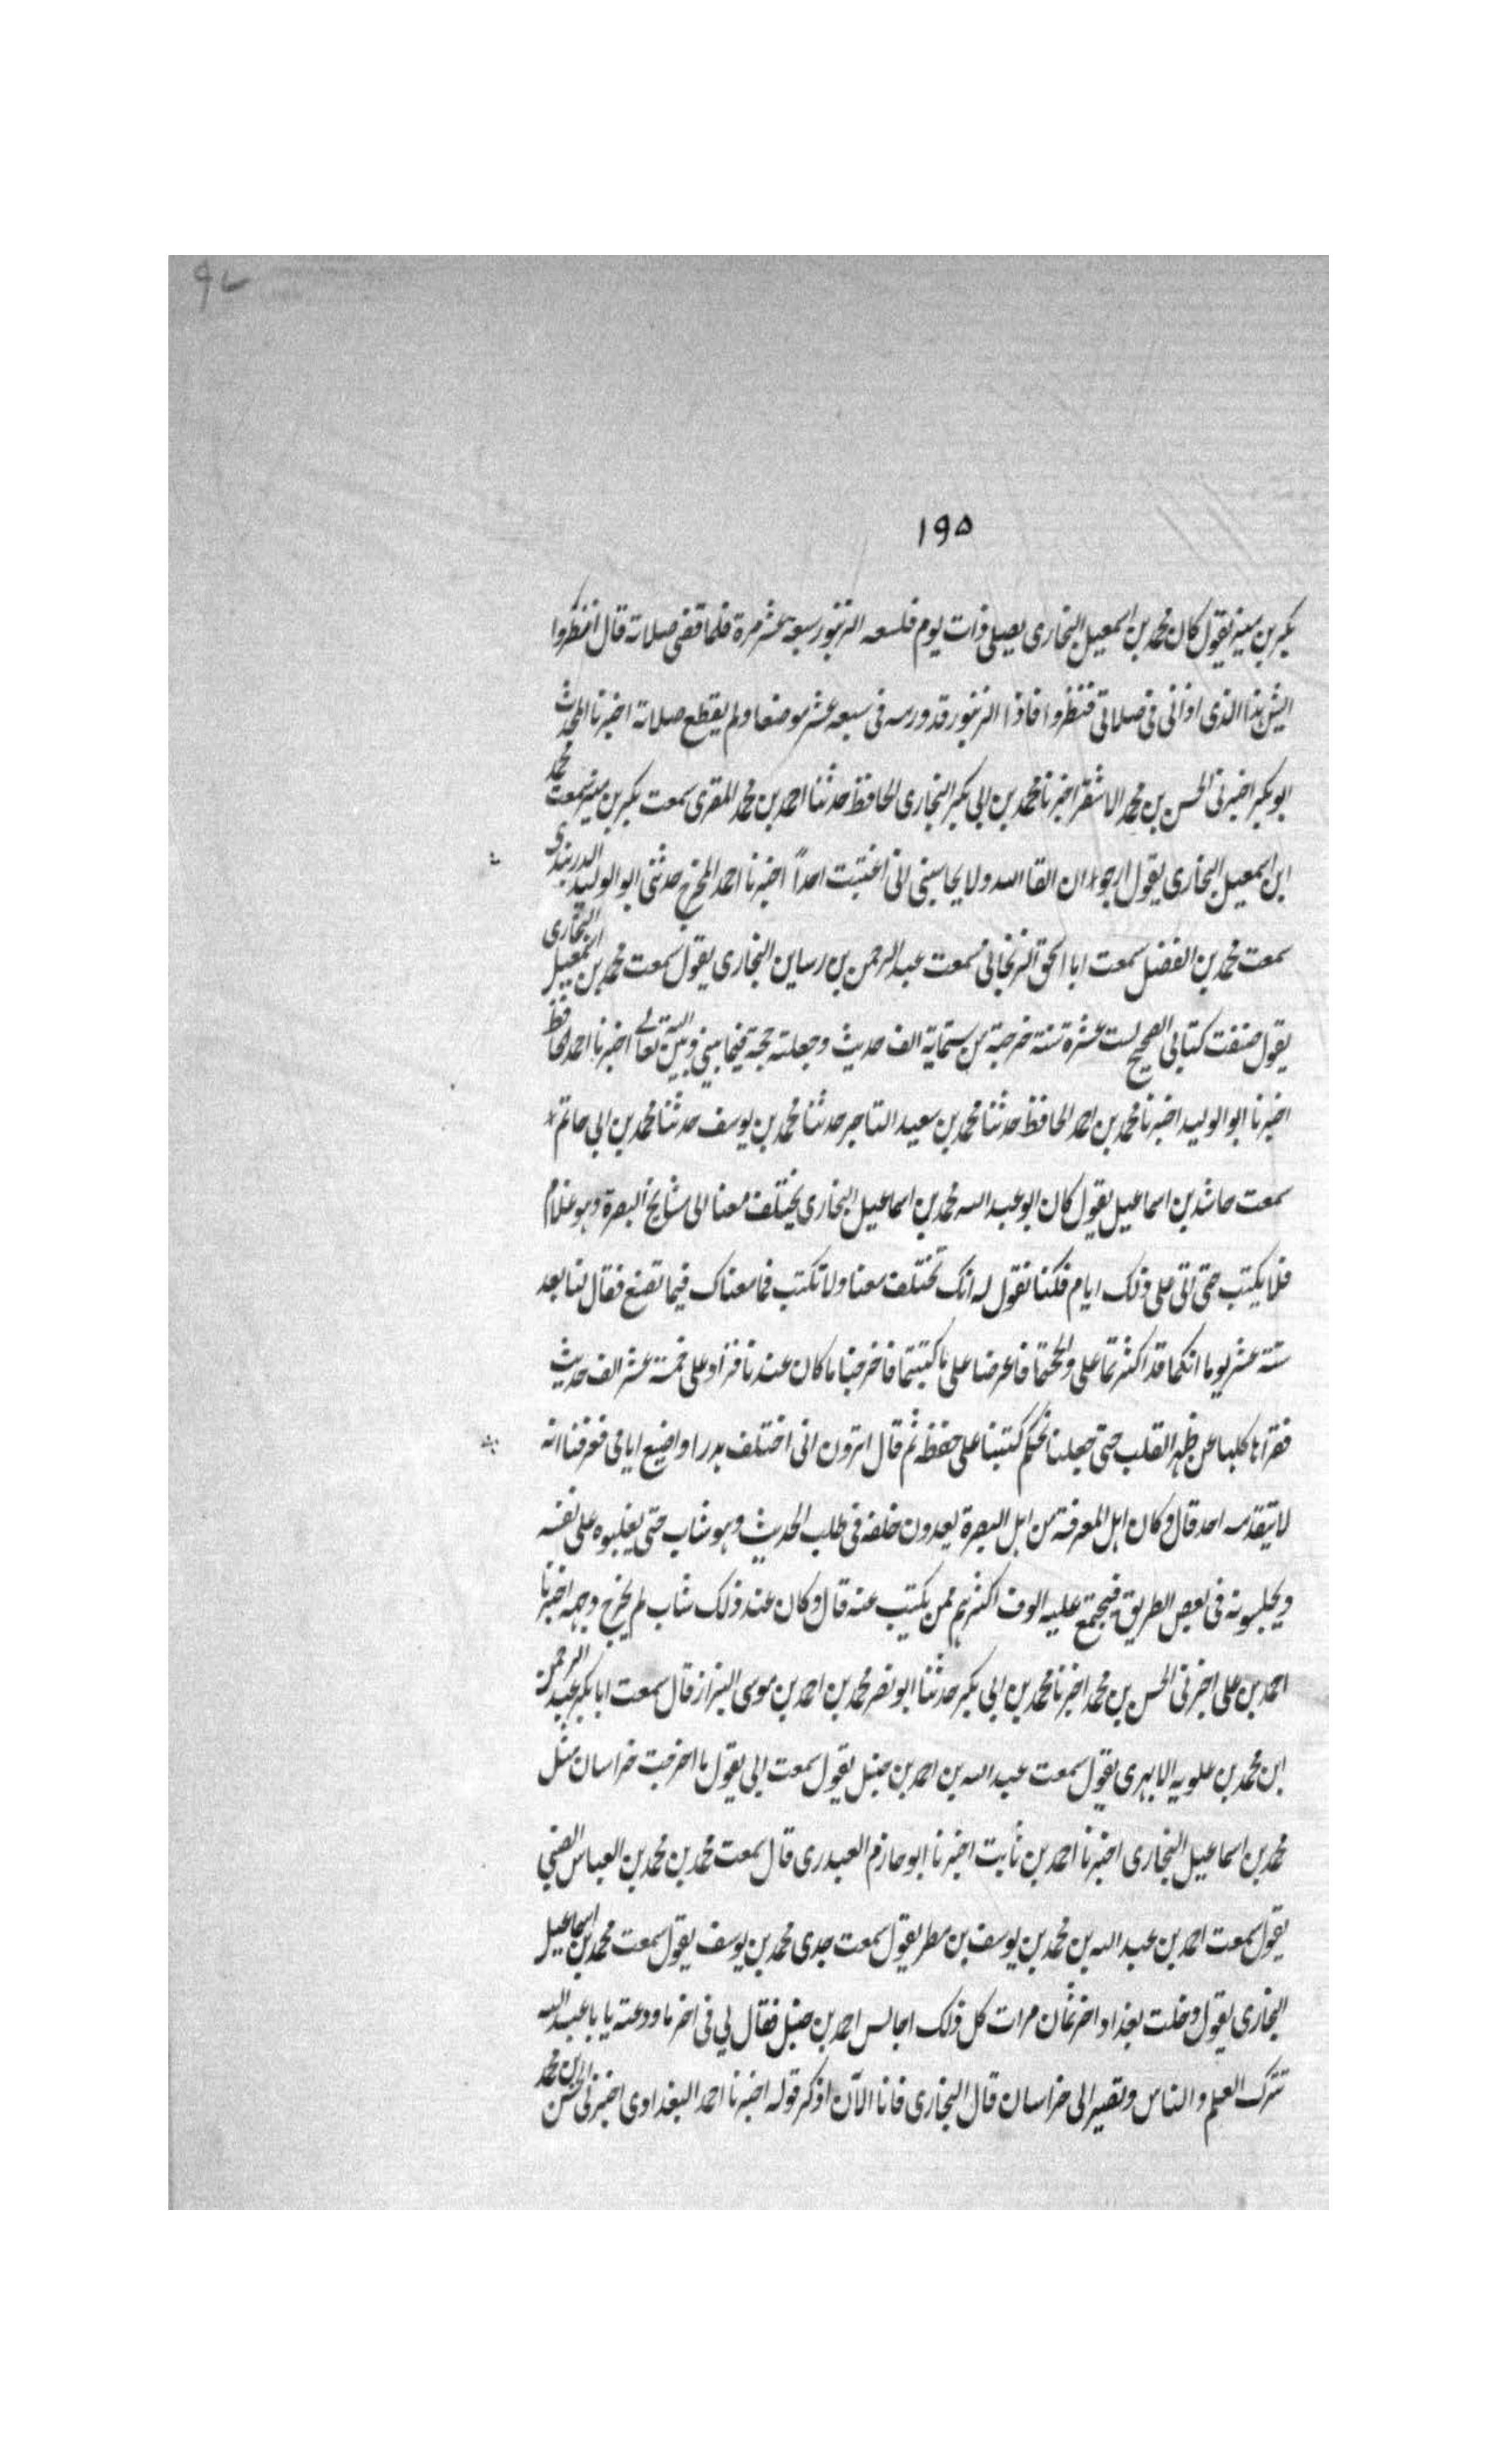 ۹۷
۱۹۵
بكر بن منير يقول كان محمد بن اسمعيل البخارى يصلى ذات يوم فلسعه الزنبور سبعة عشر مرة فلما قضى صلاته قال انظروا
ايش هذا الذى اذانى فى صلاتى فنظروا فاذا الزنبور قد ورمه فى سبعة عشر موضعا ولم يقطع صلاته اخبرنا المحدث
ابو بكر اخبرنى الحسن بن محمد الاشقر اخبرنا محمد بن ابى بكر البخارى الحافظ حدثنا احمد بن محمد المقرى سمعت بكر بن منير سمعت محمد
ابن اسمعيل البخارى يقول ارجو ان القا الله ولا يحاسبنى انى اغتبت احداً اخبرنا احمد المخرج حدثنى ابو الوليد الدربندى
سمعت محمد بن الفضل سمعت ابا اسحق الزنجانى سمعت عبد الرحمن بن رساين البخارى يقول سمعت محمد بن اسمعيل البخارى
يقول صنفت كتابى الصحيح لست عشرة سنة خرجته من ستماية الف حديث وجعلته حجة فيما بينى وبين الله تعالى اخبرنا احمد الحافظ
اخبرنا ابو الوليد اخبرنا محمد بن احمد الحافظ حدثنا محمد بن سعيد التاجر حدثنا محمد بن يوسف حدثنا محمد بن ابى حاتم
سمعت حاشد بن اسماعيل يقول كان ابو عبد الله محمد بن اسماعيل البخارى يختلف معنا الى مشايخ البصرة وهو غلام
فلا يكتب حتى اتى على ذلك ايام فكنا نقول له انك تختلف معنا ولا تكتب فما معناك فيما تصنع فقال لنا بعد
ستة عشر يوما انكما قد اكثرتما على والححتما فاعرضا على ما كتبتما فاخرجنا ما كان عندنا فزاد على خمسة عشر الف حديث
فقراها كلها عن ظهر القلب حتى جعلنا نحكم كتبنا على حفظه ثم قال اترون انى اختلف هدرا واضيع ايامى فعرفنا انه
لا يتقدمه احد قال وكان اهل المعرفة من اهل البصرة يعدون خلفه فى طلب الحديث وهو شاب حتى يغلبوه على نفسه
ويجلسونه فى بعض الطريق فيجتمع عليه الوف اكثرهم ممن يكتب عنه قال وكان عند ذلك شاب لم يخرج وجهه اخبرنا
احمد بن على اخبرنى الحسن بن محمد اخبرنا محمد بن ابى بكر حدثنا ابو نصر محمد بن احمد بن موسى البزاز قال سمعت ابا بكر عبد الرحمن
ابن محمد بن علويه الابهرى يقول سمعت عبد الله بن احمد بن حنبل يقول سمعت ابى يقول ما اخرجت خراسان مثل
محمد بن اسماعيل البخارى اخبرنا احمد بن ثابت اخبرنا ابو حازم العبدرى قال سمعت محمد بن محمد بن العباس الضبى
يقول سمعت احمد بن عبد الله بن محمد بن يوسف بن مطر يقول سمعت جدى محمد بن يوسف يقول سمعت محمد بن اسماعيل
البخارى يقول دخلت بغداد اخر ثمان مرات كل ذلك اجالس احمد بن حنبل فقال لى فى اخر ما ودعته يا با عبد الله
تترك العلم والناس وتصير الى خراسان قال البخارى فانا الآن اذكر قوله اخبرنا احمد البغدادى اخبرنى الحسن بن محمد